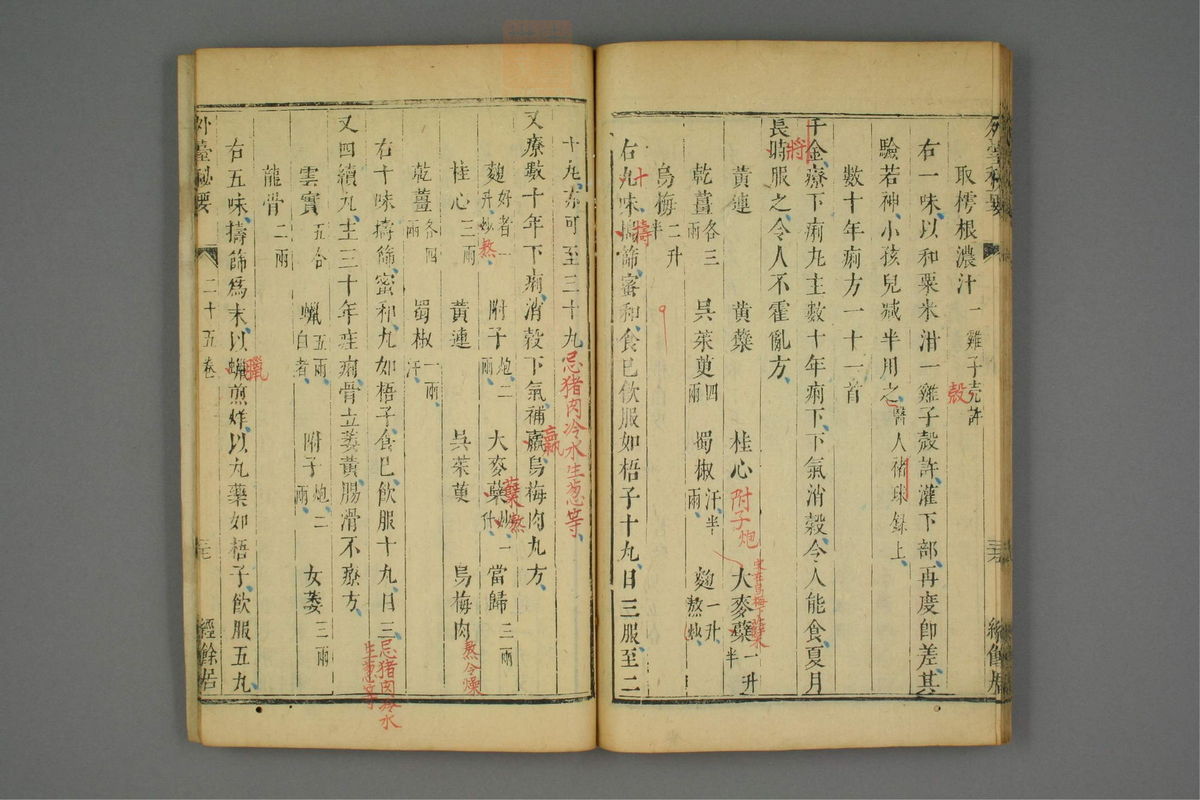 外臺祕要
取樗根濃汁 一雞子壳許 殼
右一味以和粟米泔一雞子殼許灌下部再度卽差其
驗若神小孩兒減半用之 醫人錄上
數十年痢方一十一首
千金療下痢丸主數十年痢下下氣消穀令人能食夏月
長時服之令人不霍亂方 將
黃連 黃蘗 桂心 附子炮 大麥糵一升半
乾薑各三兩 吳茱萸四兩 蜀椒汗半兩 麴一升熬炒
烏梅二升半
右九味擣篩蜜和食已飲服如梧子十丸日三服至二 十 擣
十丸亦可至三十丸 忌猪肉冷水生葱等
又療數十年下痢消穀下氣補羸烏梅肉丸方 羸
麴好者一升炒 熬 附子炮二兩 大麥糵炒一升 糵熬 當歸三兩
桂心三兩 黃連 吳茱萸 烏梅肉 熬令燥
乾薑各四兩 蜀椒一兩汗
右十味擣篩蜜和丸如梧子食已飲服十丸日三 忌猪肉冷水生葱等
又四續丸主三十年疰痢骨立萎黃腸滑不療方
雲實五合 蠟五兩白者 附子炮二兩 女萎三兩
龍骨二兩
右五味擣篩爲末以蠟煎烊以丸藥如梧子飲服五丸 臘
外臺祕要 二十五卷 三七 經餘居